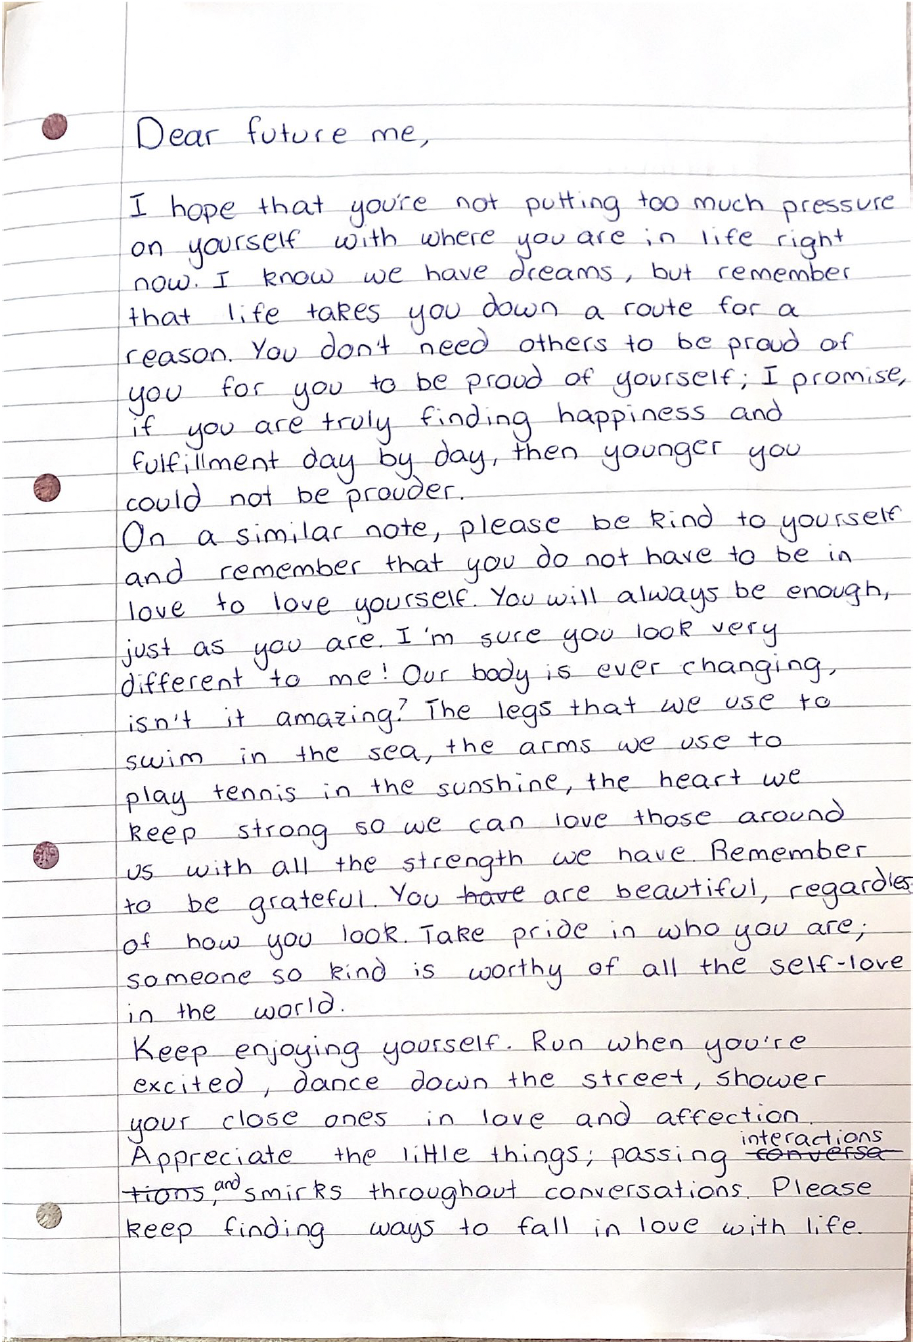 Dear future me,
I hope that you're not putting too much pressure
on yourself with where you are in life right
now. I know we have dreams, but remember
that life takes you down a route for a
reason. You don't need others to be proud of
you for you to be proud of yourself; I promise,
if you are truly finding happiness and
fulfillment day by day, then younger you
could not be prouder.
On a similar note, please be kind to yourself
and remember that you do not have to be in
love to love yourself. You will always be enough,
just as you are. I'm sure you look very
different to me! Our body is ever changing,
isn't it amazing? The legs that we use to
swim in the sea, the arms we use to
play tennis in the sunshine, the heart we
keep strong so we can love those around
us with all the strength we have. Remember
to be grateful. You have are beautiful, regardles
of how you look. Take pride in who you are;
someone so kind is worthy of all the self-love
in the world.
Keep enjoying yourself. Run when you're
excited, dance down the street, shower
your close ones in love and affection.
interactions
Appreciate the little things; passing conversa-
tions, and smirks throughout conversations. Please
keep finding ways to fall in love with life.